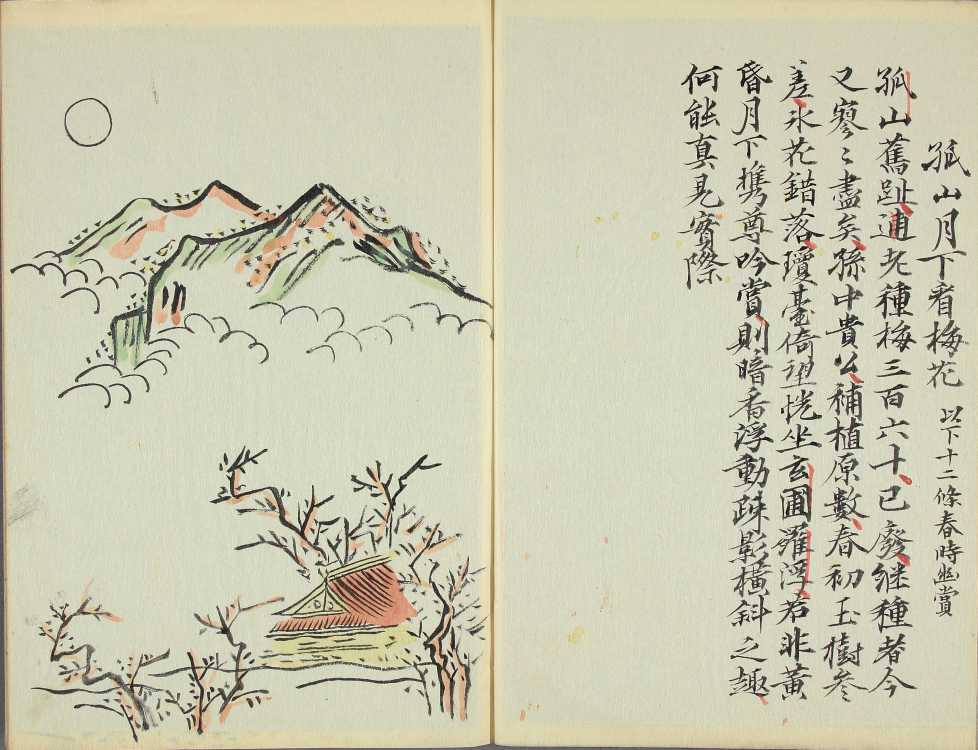 孤山月下看梅花 以下十二條春時幽賞
孤山舊趾逋老種梅三百六十已廢继種者今
又寥〻盡矣孫中貴公補植原數春初玉樹參
差氷花錯落瓊臺倚望恍坐玄圃羅浮若非黄
昏月下攜尊吟賞則暗香浮動疎影橫斜之趣
何能真見實際